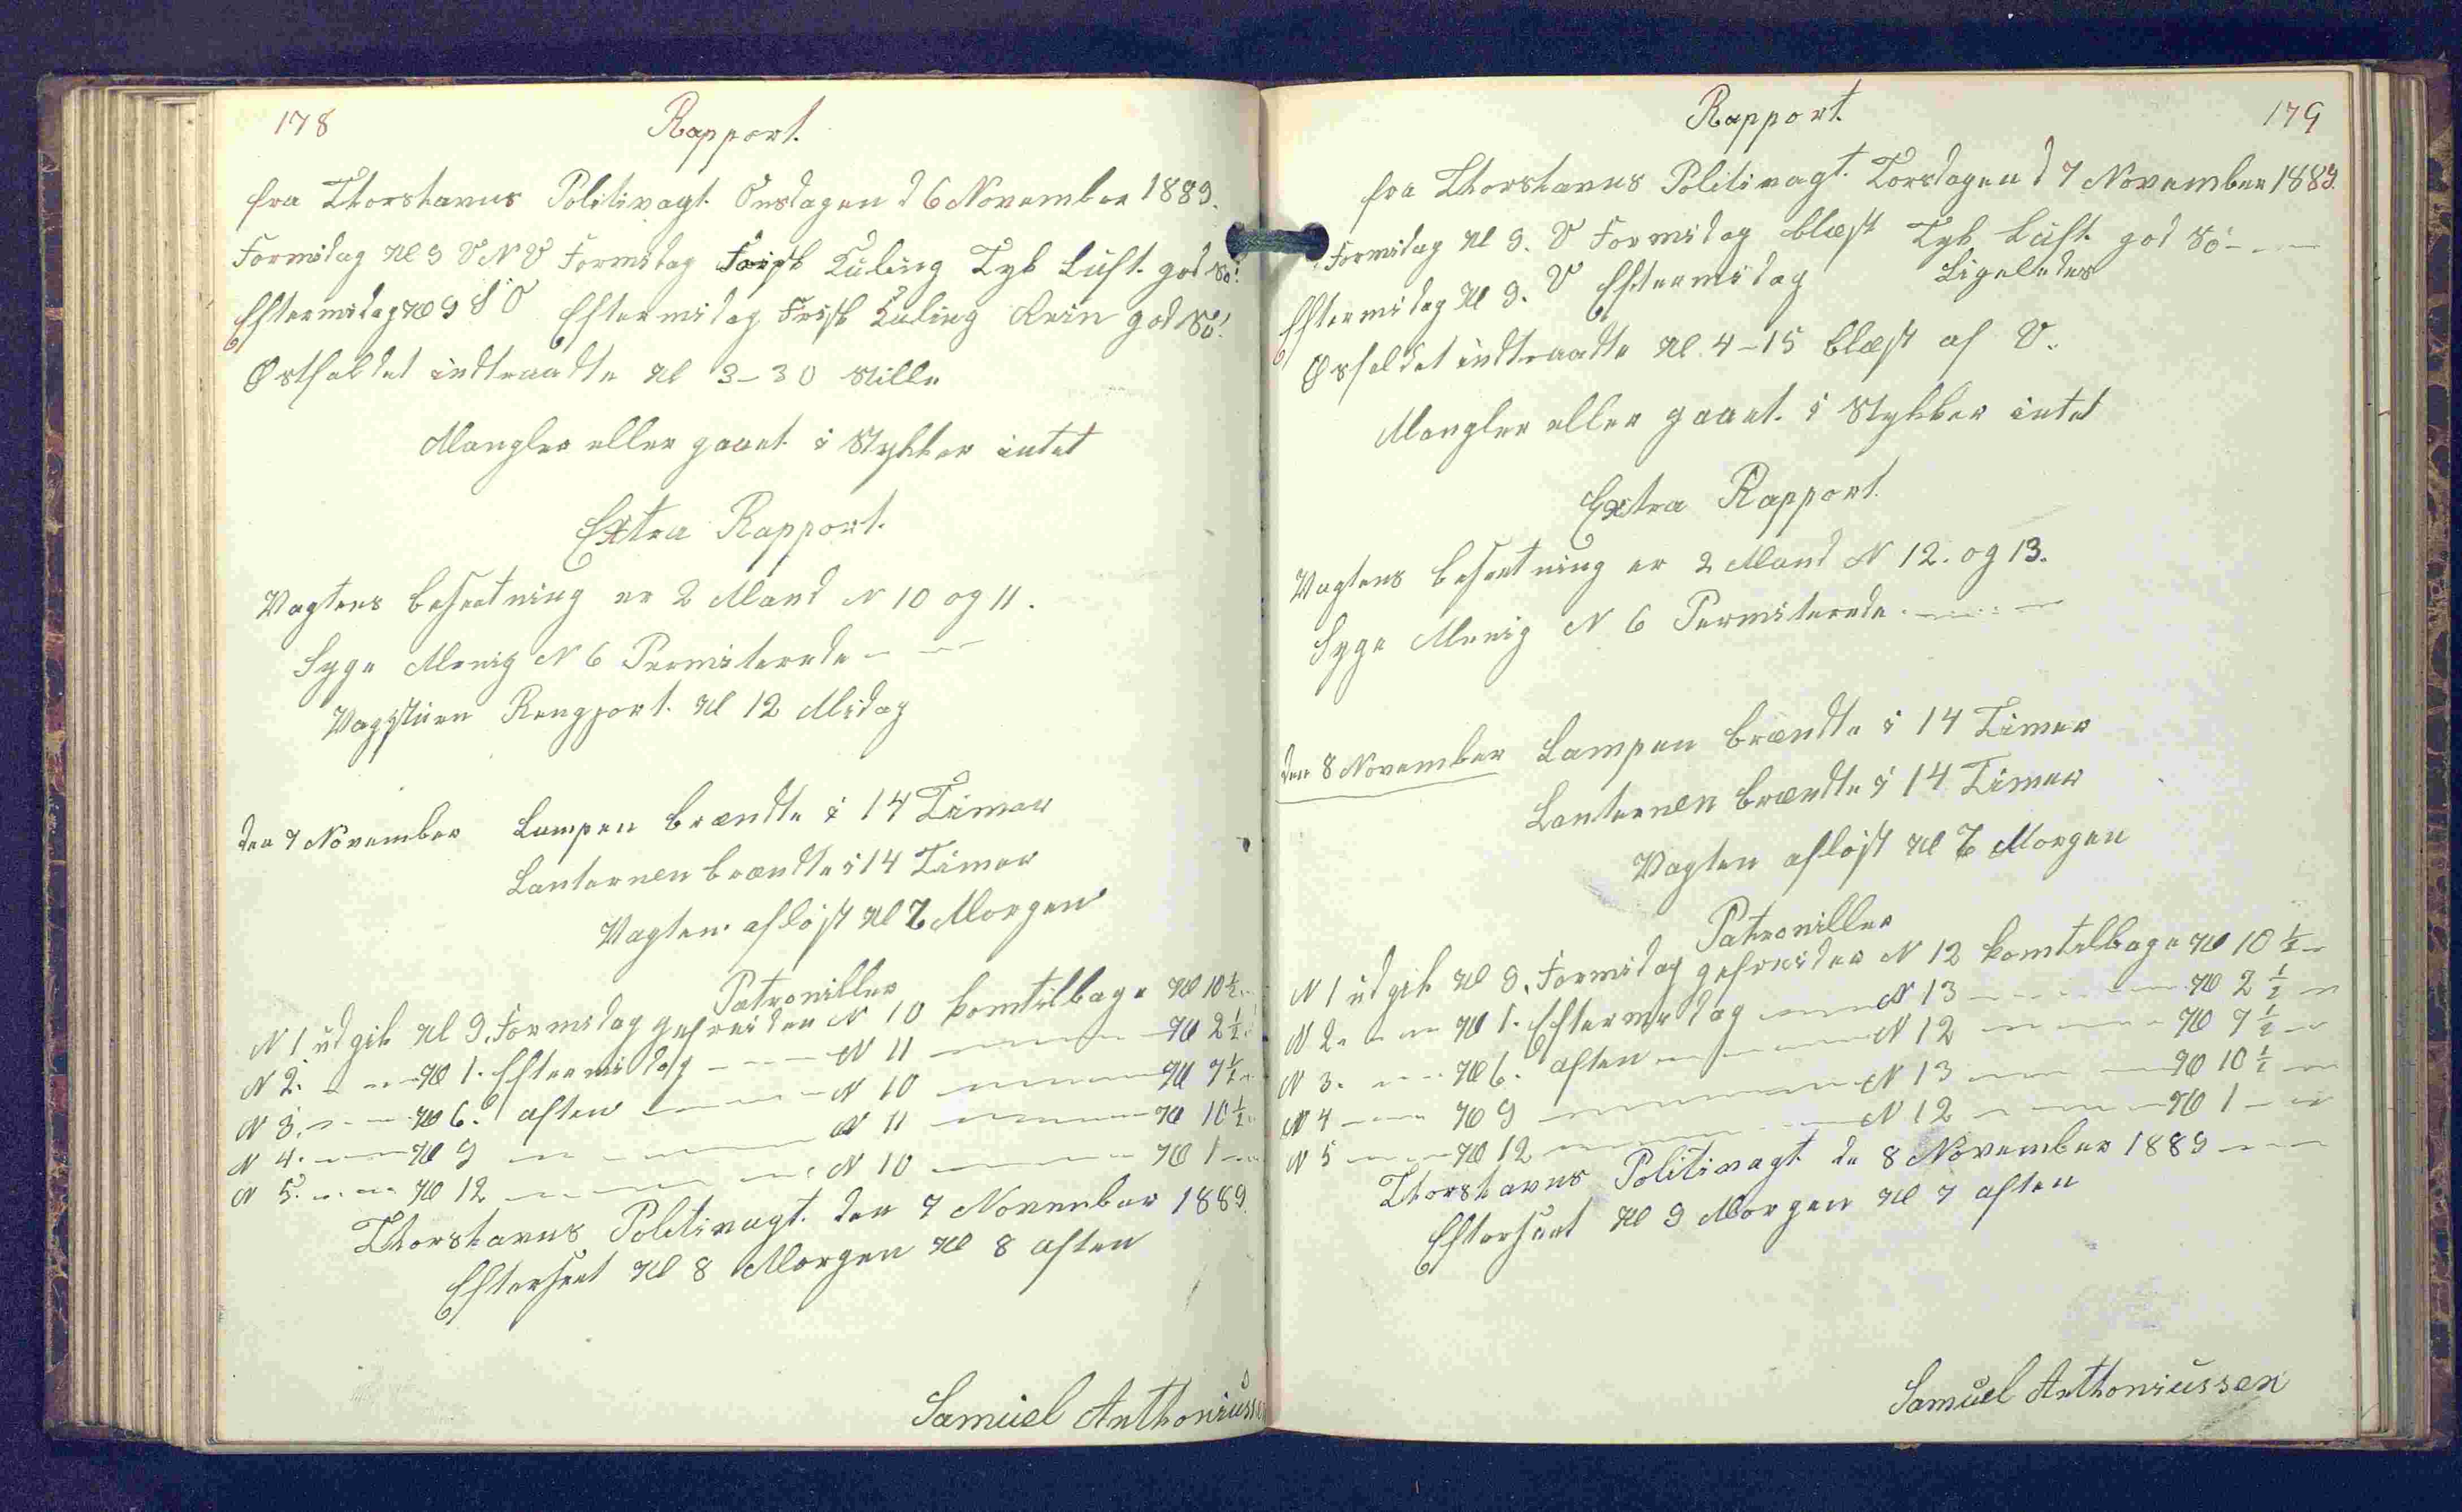 178
Rapport.
fra Thorshavns Politivagt. Onsdagen d 6 November 1889.
Formidag Kl 9 V N V Formidag Frisk Kuling Tyk Luft. god Sö.
Eftermidag Kl 9 S O Eftermidag Frisk Kuling Rein god Sö.
Østfaldet indtraadte Kl 3-30 Stille
Mangler eller gaaet i Stykker intet
Extra Rapport.
Vagtens besætning er 2 Mand N 10 og 11.
Syge Menig N 6 Permiterede – –
Vagstuen Rengjort. Kl 12 Midag
den 7 November Lampen brændte i 14 Timer
Lanternen brændte i 14 Timer
Vagten aflöst Kl 7 Morgen
Patroniller
N 1 udgik Kl 9. Formidag gefreider N 10 komtilbage Kl 10 ½
N 2. – – Kl 1. Eftermidag – – N 11 – – Kl 2 ½
N 3. – – Kl 6. aften – – N 10 – – Kl 7 ½
N 4. – – Kl 9 – – N 11 – – Kl 10 ½
N 5. – – Kl 12 – – N 10 – – Kl 1 –
Thorshavns Politivagt. den 7 November 1889.
Efterseet Kl 8 Morgen Kl 8 aften
Samuel Anthoniussen
Rapport.
179
fra Thorshavns Politivagt. Torsdagen d 7 November 1889.
Formidag Kl 9. V Formidag blæst Tyk Luft. god Sö – –
Eftermidag Kl 9. V Eftermidag Ligeledes
Øsfaldet indtraadte Kl. 4-15 blæst af V.
Mangler eller gaaet. i Stykker intet
Extra Rapport.
Vagtens besætning er 2 Mand N 12. og 13.
Syge Menig N 6 Permiterede. – –
den 8 November Lampen brændte i 14 Timer
Lanternen brændte i 14 Timer
Vagten aflöst Kl 7 Morgen
Patroniller
N 1 udgik Kl 9. Formidag gefreider N 12 komtilbage Kl 10 ½
N 2. – – Kl 1. Eftermidag – – N 13 – – Kl 2 ½
N 3. – – Kl 6. aften – – N 12 – – Kl 7 ½
N 4 – – Kl 9 – – N 13 – – Kl 10 ½
N 5 – – Kl 12 – – N 12 – – Kl 1 –
Thorshavns Politivagt. de 8 November 1889 – –
Efterseet Kl 9 Morgen Kl 7 aften
Samuel Anthoniussen